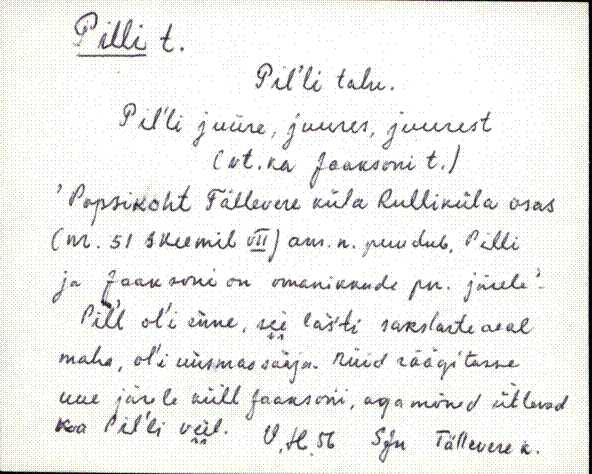 Pilli t.
Pil'li talu.
Pil'li juure, juures, juurest
(vt. ka Jaaksoni t.)
'Popsikoht Tällevere küla Rulliküla osas
(nr. 51 skeemil VII) am. n. puudub, Pilli
ja Jaaksoni on omanikkude pn. järele'.
Pil'l ol'i enne, sei läs'ti sakslaste aeal
maha, ol'i uusmaasaaja. Nüid räägitasse
uue järele küll Jaaksoni, aga mõned ütlevad
koa Pil'li veil. V.H. 56 SJn Tällevere k.